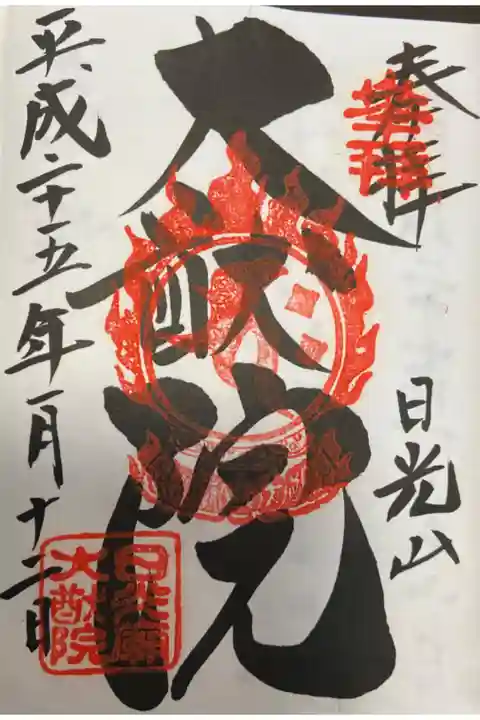 奉拝
登拝
日光山
大猷院
平成二十五年一月十二日
日光廟
大猷院